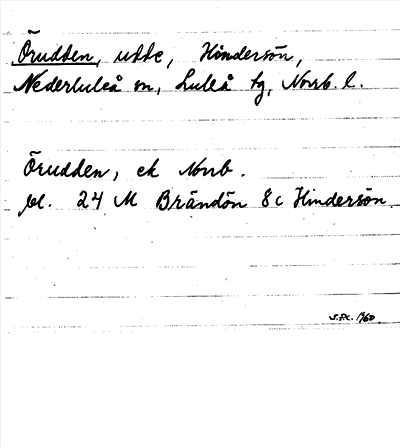 Örudden, udde, Hindersön,
Nederluleå sn, Luleå tg, Norrb. l.
Örudden, ek Norrb.
bl. 24 M Brändön 8c Hindersön.
1960.